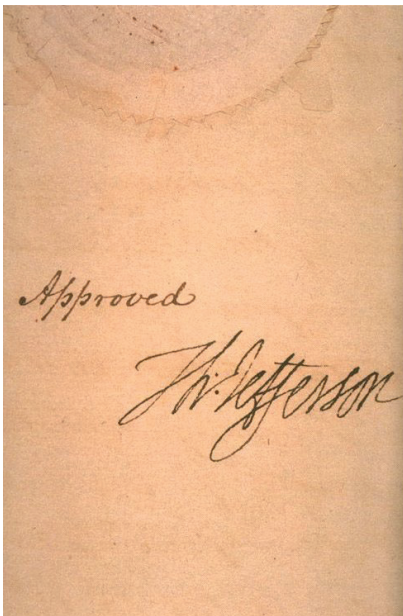 Approved
Th: Jefferson